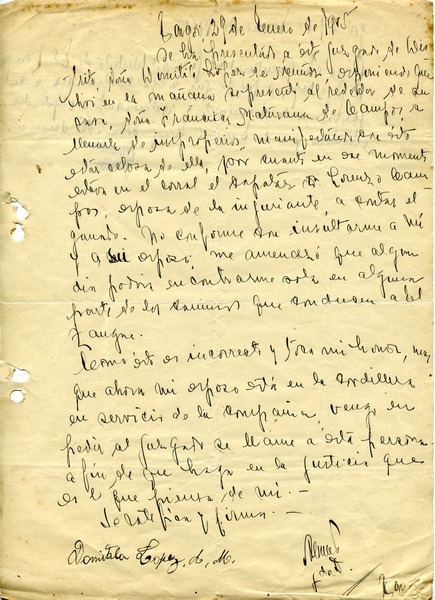 29 de Enero de 1905
Se ha presentado a este Juzgado de Dis
trito, doña Domitila Lopez de exponiendo que
hoy en la mañana se presentó al rededor de su
casa, doña Francisca Maturana de Campos, a
llenarla de improperios, manifestándose
estar celosa de ella, por cuanto en ese momento
estaba en el corral el capataz Lorenzo Cam
pos, esposo de la injuriante, a contar el
ganado. No conforme con insultarme a mí
y a mi esposo me amenazó que algun
dia podria encontrarme sola en alguna
parte de los caminos que conducen a el
Zanjon.
Como esto es incorrecto y toca mi honor, mas
que ahora mi esposo está en la cordillera
en servicio de la compañia, vengo en
pedir al Juzgado se llame a esta persona
a fin de que haga en la justicia que
es lo que piensa de mi. —
Se ratifica y firma. —
Domitila Lopez, de M.